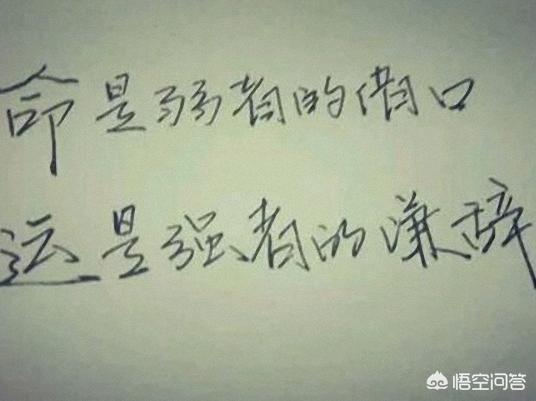 命是弱者的借口
运是强者的谦辞
悟空问答